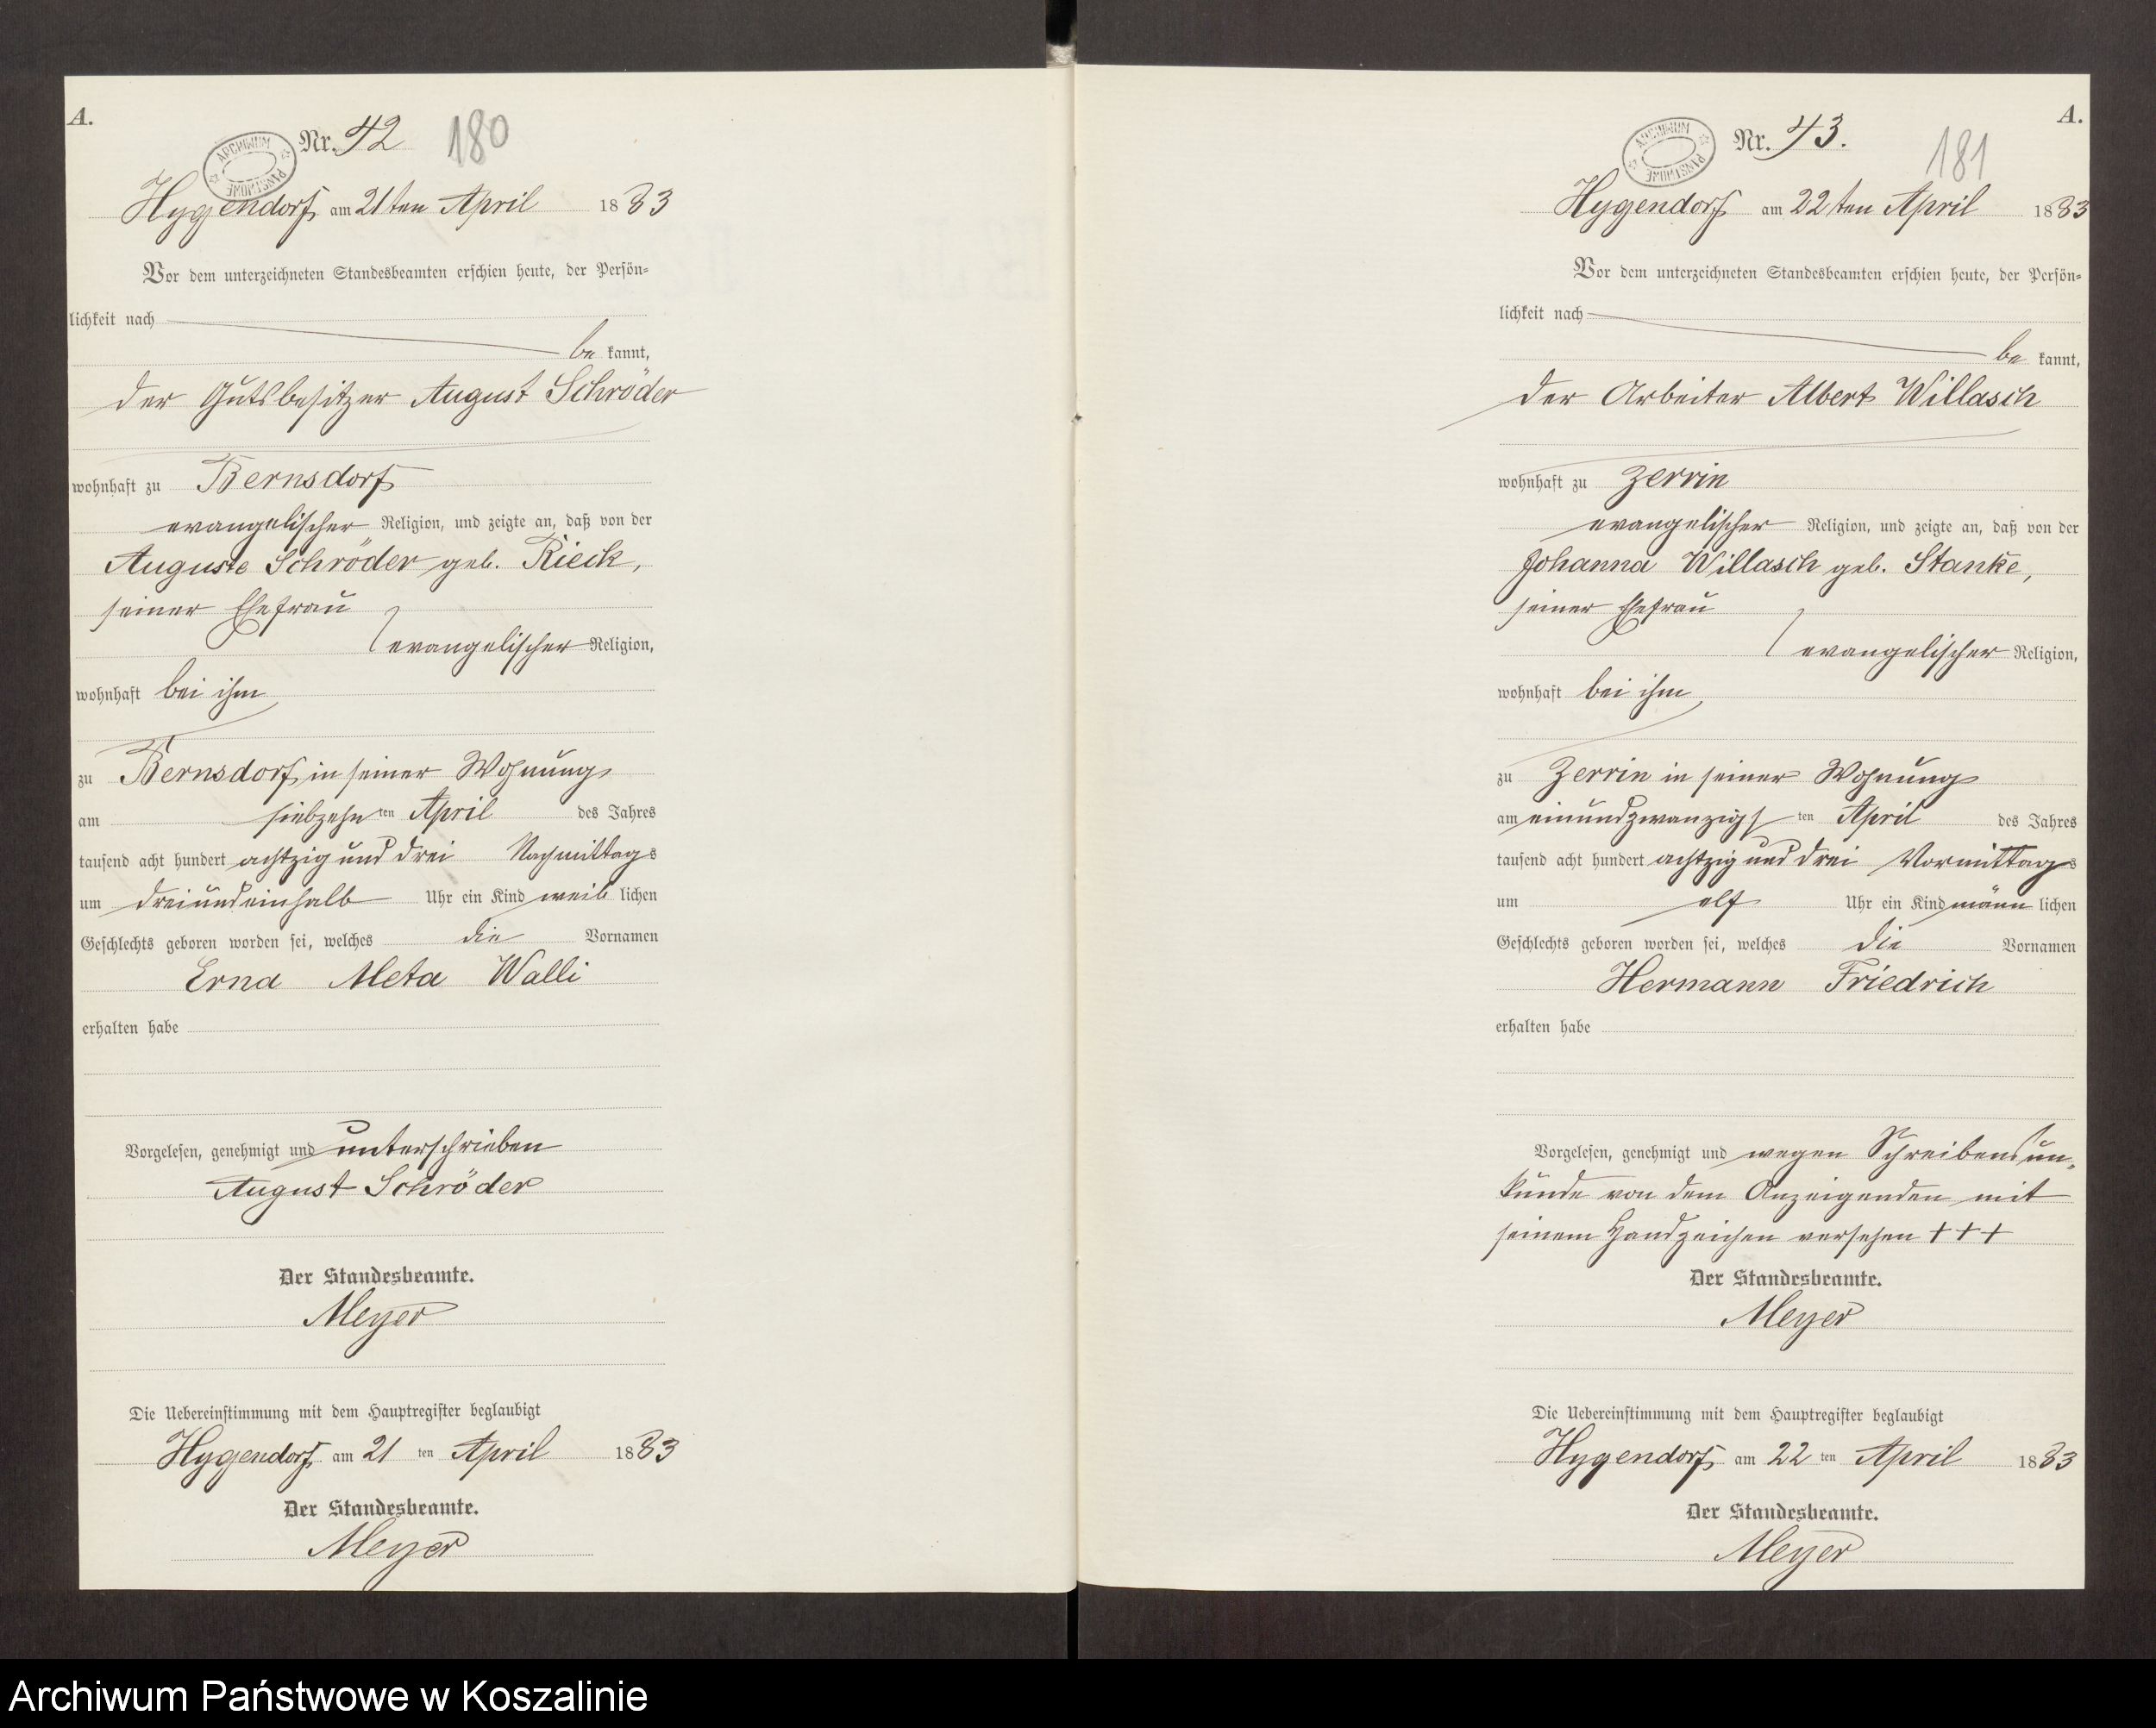 A.
ARCHIWUM PAŃSTWOWE
Nr. 42 180
Hygendorf am 21ten April 1883
Vor dem unterzeichneten Standesbeamten erschien heute, der Persön-
lichkeit nach
be kannt,
der Gutsbesitzer August Schröder
wohnhaft zu Bernsdorf
evangelischer Religion, und zeigte an, daß von der
Auguste Schröder geb. Rieck,
seiner Ehefrau
evangelischer Religion,
wohnhaft bei ihm
zu Bernsdorf in seiner Wohnung
am siebzehn ten April des Jahres
tausend acht hundert achtzig und drei Nachmittags
um dreiundeinhalb Uhr ein Kind weib lichen
Geschlechts geboren worden sei, welches die Vornamen
Erna Meta Walli
erhalten habe
Vorgelesen, genehmigt und unterschrieben
August Schröder
Der Standesbeamte.
Meyer
Die Uebereinstimmung mit dem Hauptregister beglaubigt
Hygendorf am 21 ten April 1883
Der Standesbeamte.
Meyer
A.
ARCHIWUM PAŃSTWOWE
Nr. 43. 181
Hygendorf am 22ten April 1883
Vor dem unterzeichneten Standesbeamten erschien heute, der Persön-
lichkeit nach
be kannt,
der Arbeiter Albert Willasch
wohnhaft zu Zerrin
evangelischer Religion, und zeigte an, daß von der
Johanna Willasch geb. Stanke,
seiner Ehefrau
evangelischer Religion,
wohnhaft bei ihm
zu Zerrin in seiner Wohnung
am einundzwanzigs ten April des Jahres
tausend acht hundert achtzig und drei Vormittags
um elf Uhr ein Kind männ lichen
Geschlechts geboren worden sei, welches die Vornamen
Hermann Friedrich
erhalten habe
Vorgelesen, genehmigt und wegen Schreibensun-
kunde von dem Anzeigenden mit
seinem Handzeichen versehen +++
Der Standesbeamte.
Meyer
Die Uebereinstimmung mit dem Hauptregister beglaubigt
Hygendorf am 22 ten April 1883
Der Standesbeamte.
Meyer
Archiwum Państwowe w Koszalinie